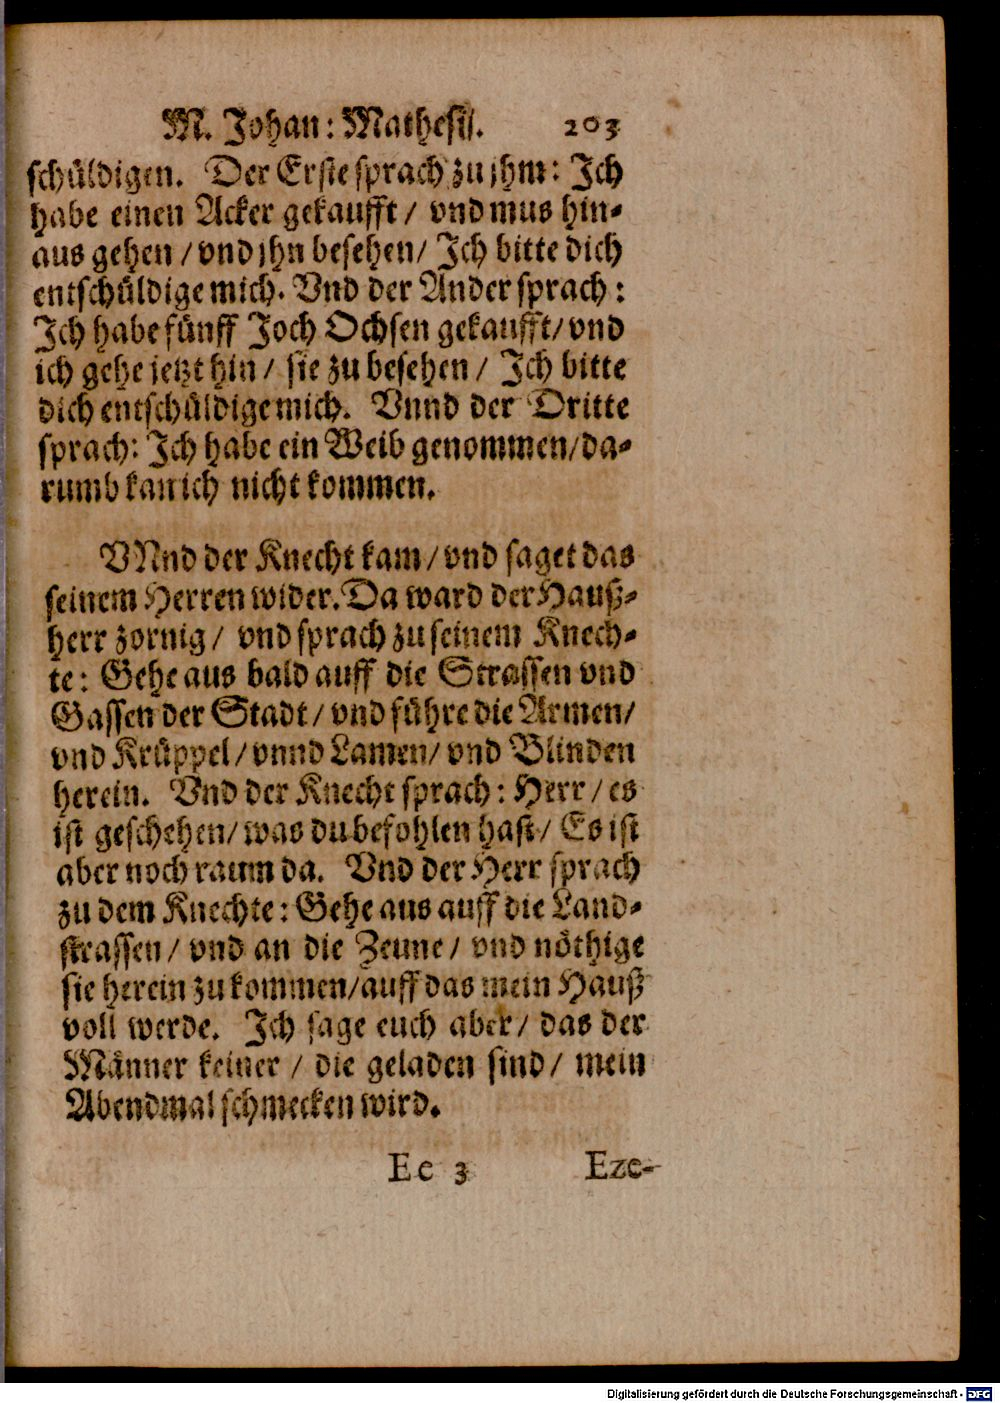 M. Johan: Mathesij. 203
schüldigen. Der Erste sprach zu jhm: Ich
habe einen Acker gekaufft / vnd mus hin-
aus gehen / vnd jhn besehen / Ich bitte dich
entschüldige mich. Vnd der Ander sprach:
Ich habe fünff Joch Ochsen gekaufft / vnd
ich gehe jetzt hin / sie zu besehen / Ich bitte
dich entschüldige mich. Vnnd der Dritte
sprach: Ich habe ein Weib genommen / da-
rumb kan ich nicht kommen.
VNnd der Knecht kam / vnd saget das
seinem Herren wider. Da ward der Hauß-
herr zornig / vnd sprach zu seinem Knech-
te: Gehe aus bald auff die Strassen vnd
Gassen der Stadt / vnd führe die Armen /
vnd Krüppel / vnnd Lamen / vnd Blinden
herein. Vnd der Knecht sprach: Herr / es
ist geschehen / was du befohlen hast / Es ist
aber noch raum da. Vnd der Herr sprach
zu dem Knechte: Gehe aus auff die Land-
strassen / vnd an die Zeune / vnd nöthige
sie herein zu kommen / auff das mein Hauß
voll werde. Ich sage euch aber / das der
Männer keiner / die geladen sind / mein
Abendmal schmecken wird.
Ee 3 Eze-
Digitalisierung gefördert durch die Deutsche Forschungsgemeinschaft - DFG